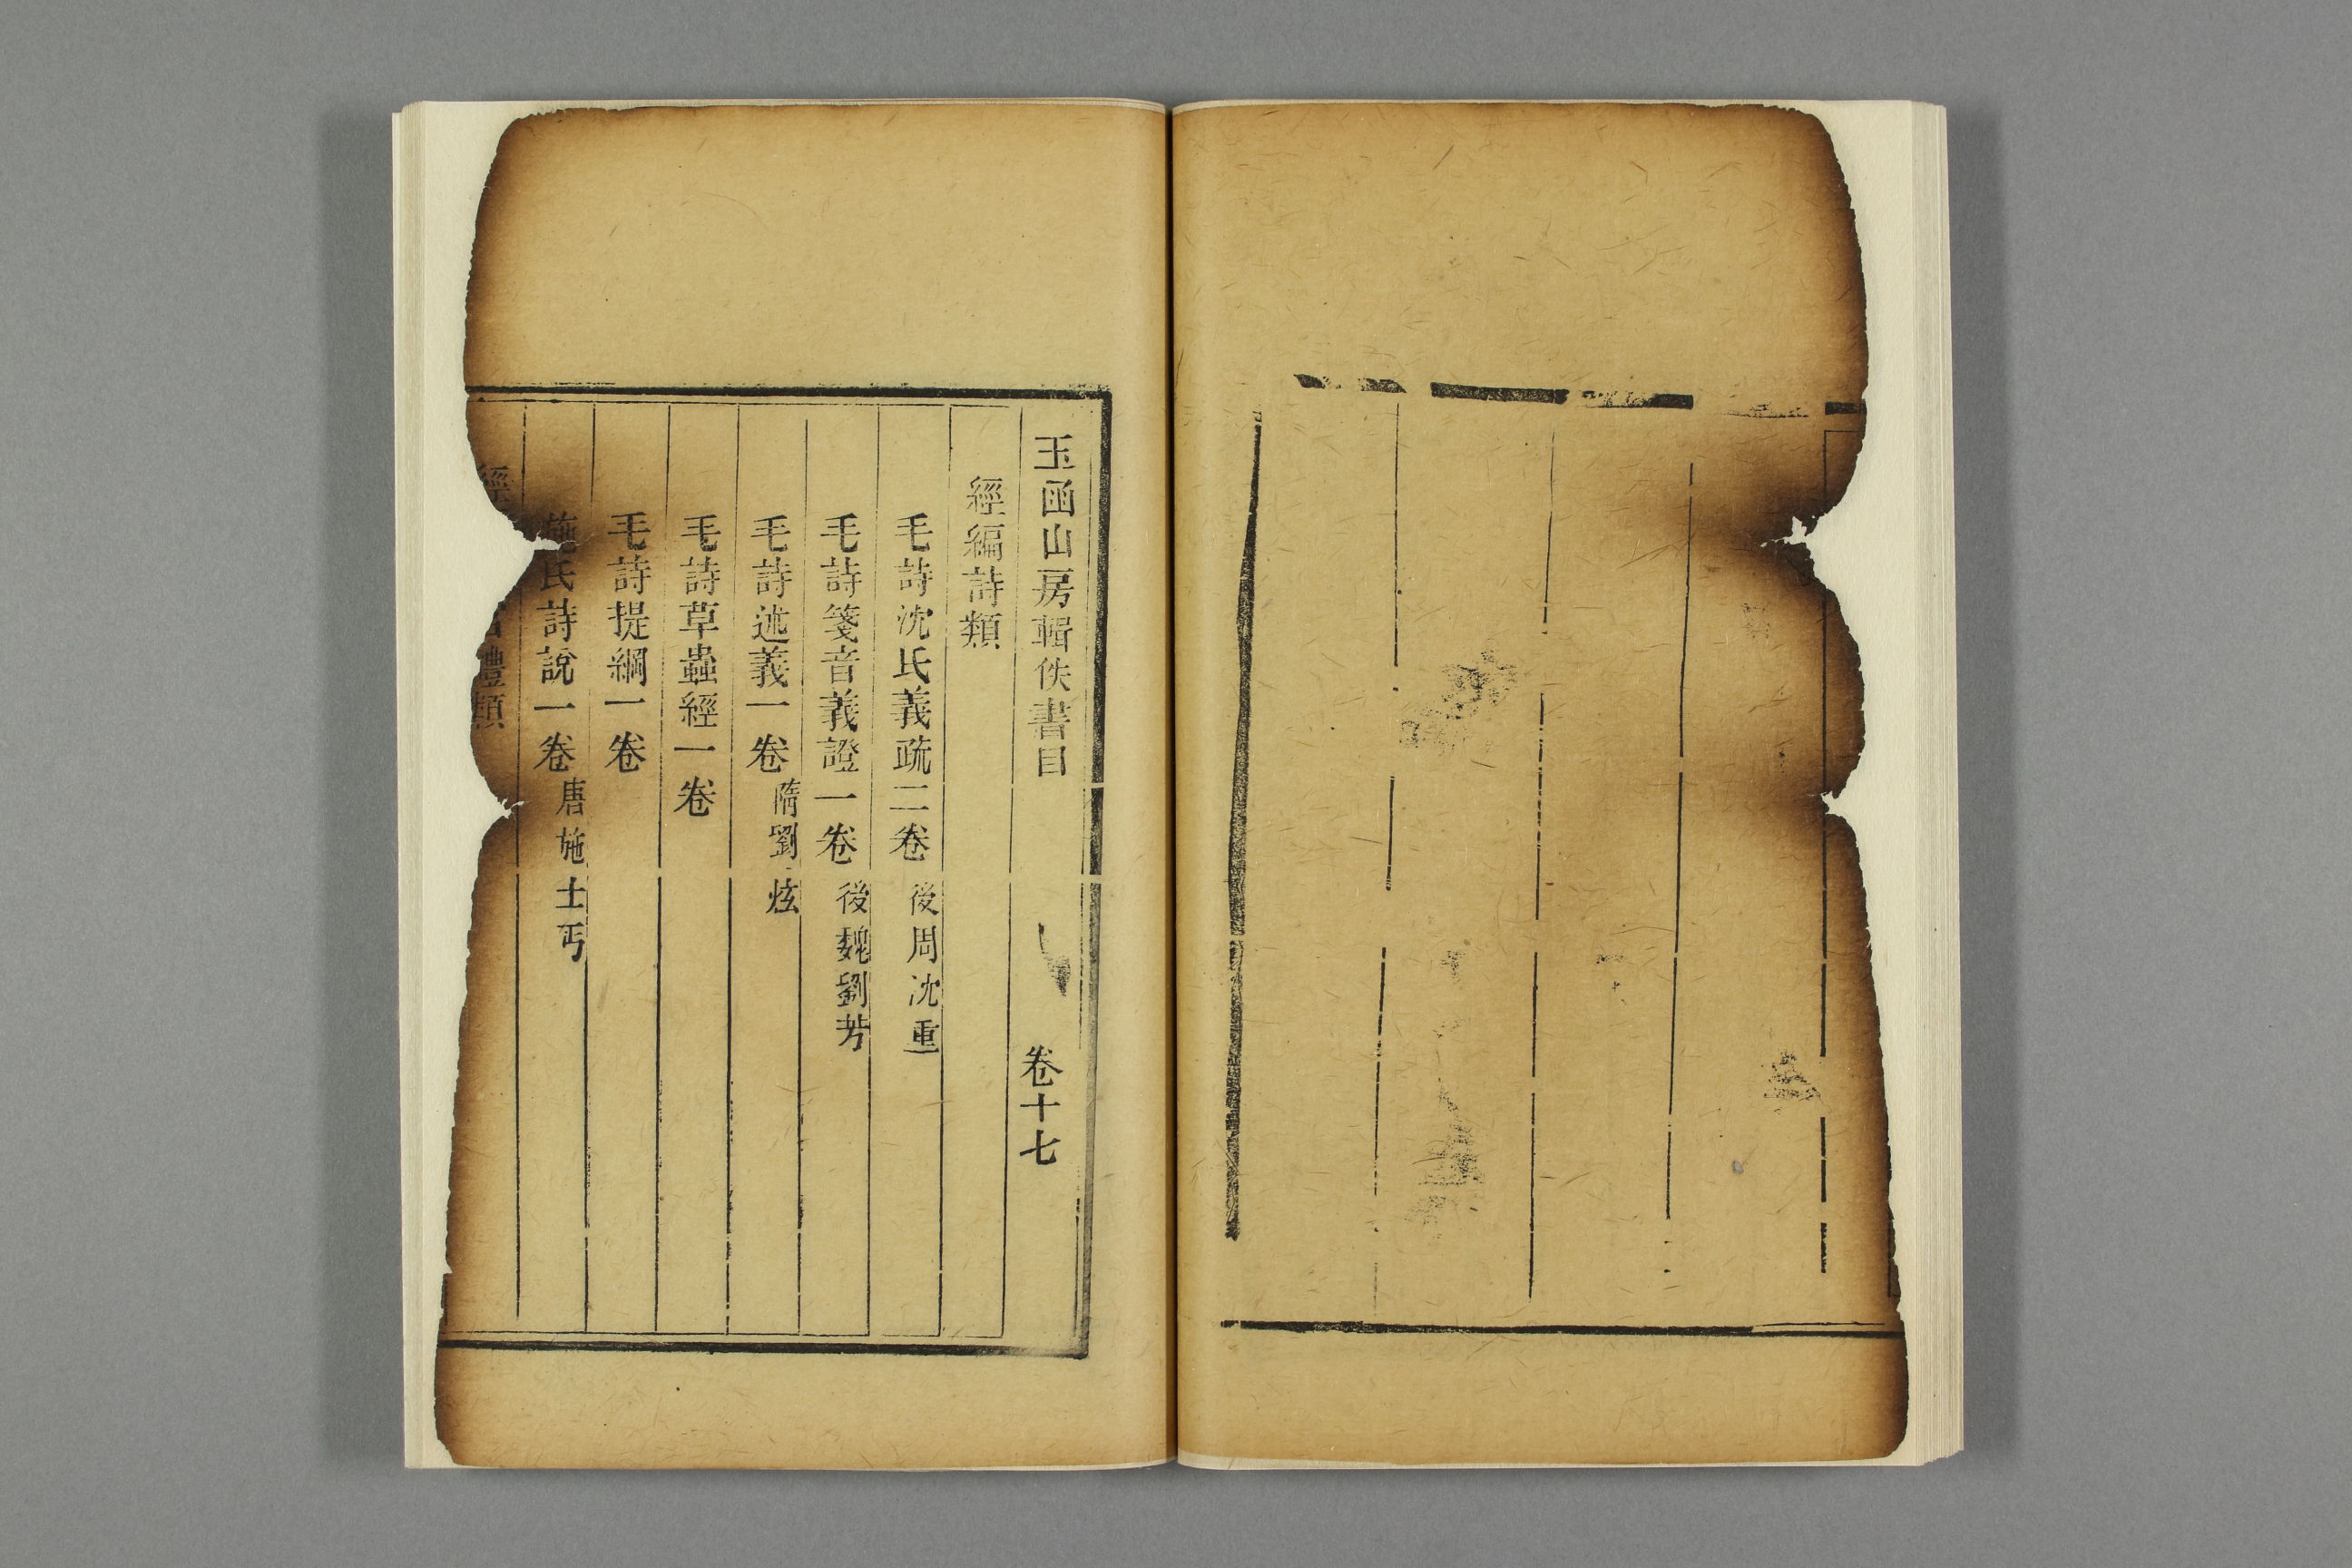 玉函山房輯佚書目 卷十七
經編詩類
毛詩沈氏義疏二卷 後周沈重
毛詩箋音義證一卷 後魏劉芳
毛詩述義一卷 隋劉炫
毛詩草蟲經一卷
毛詩提綱一卷
施氏詩說一卷 唐施士丐
經 禮類